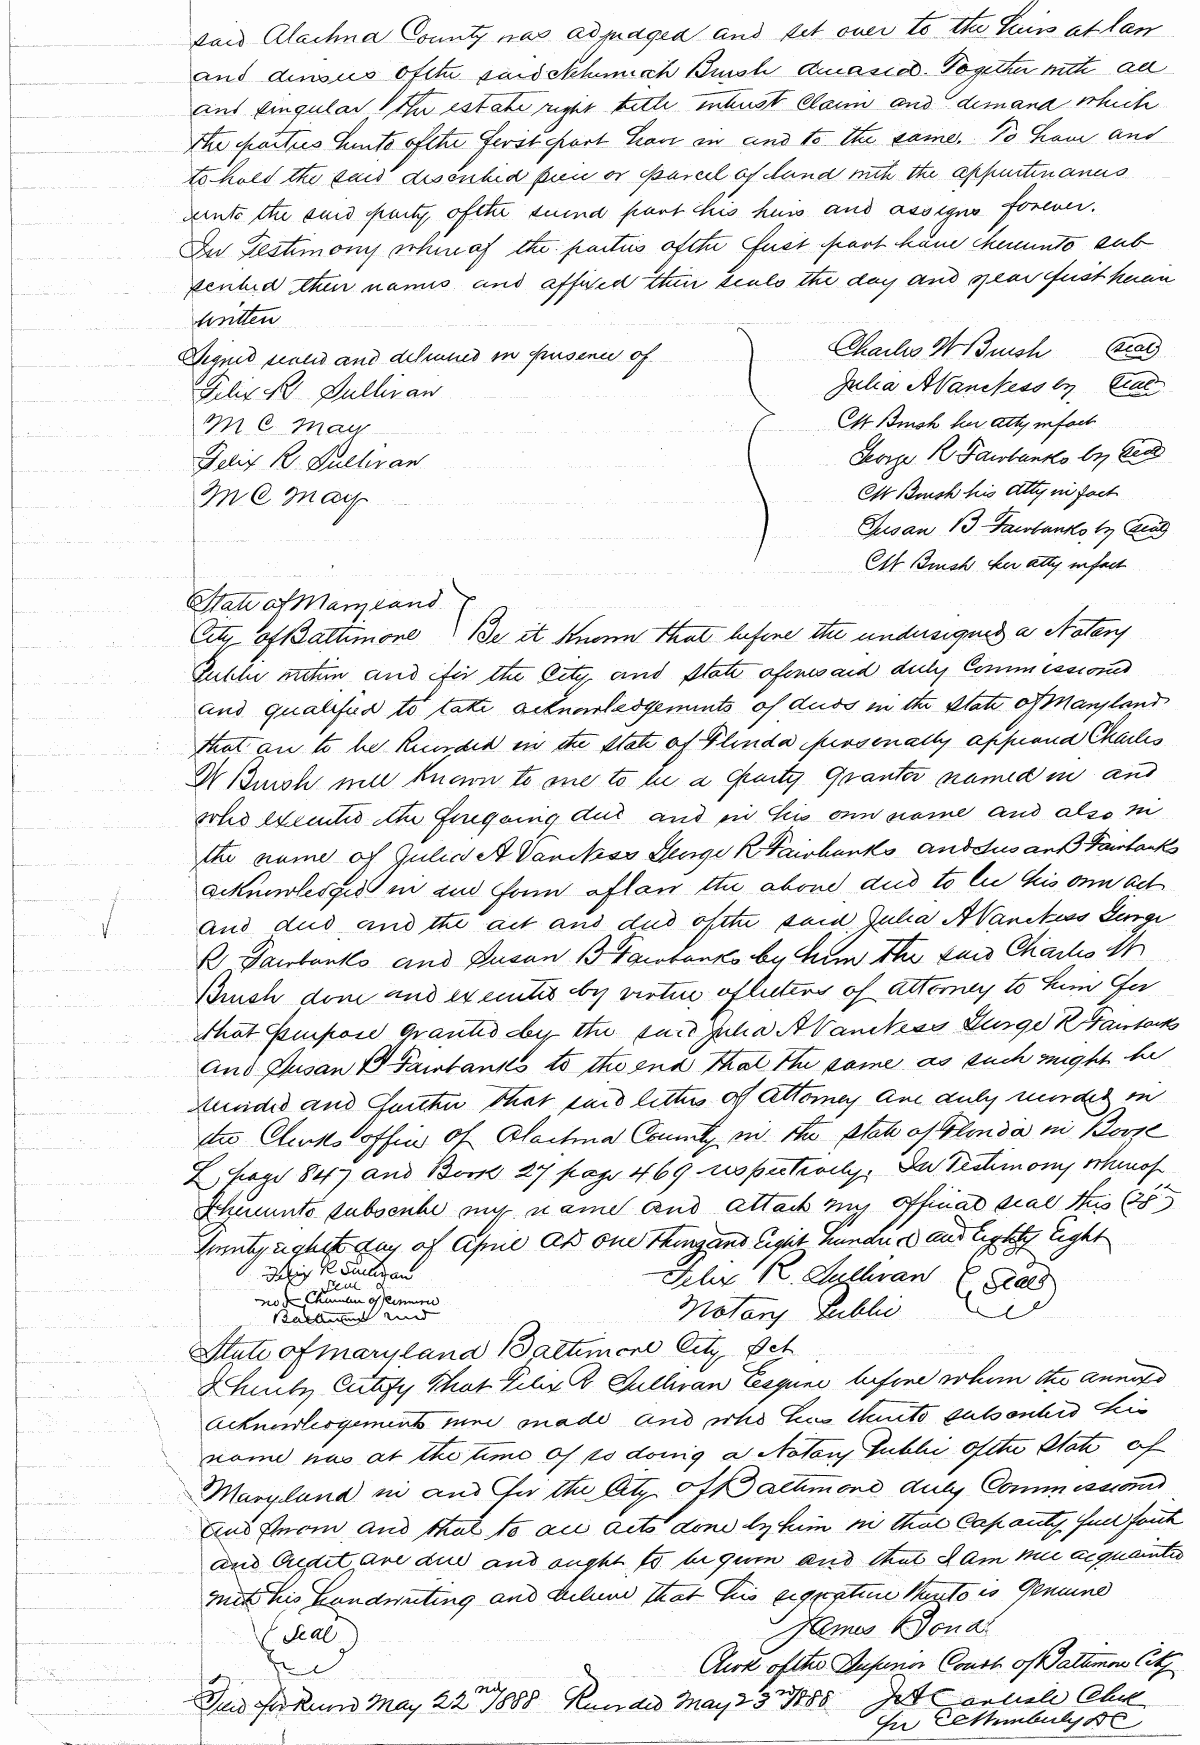 said Alachua County was adjudged and set over to the heirs at law
and devisees of the said Nehemiah Brush deceased. Together with all
and singular the estate right title interest claim and demand which
the parties hereto of the first part have in and to the same. To have and
to hold the said described piece or parcel of land with the appurtenances
unto the said party of the second part his heirs and assigns forever.
In Testimony whereof the parties of the first part have hereunto sub
scribed their names and affixed their seals the day and year first herein
written
Signed sealed and delivered in presence of
Felix R Sullivan
M C May
Felix R. Sullivan
M C May
Charles W Brush (seal)
Julia A Van Ness by (seal)
CW Brush her atty in fact
George R Fairbanks by (seal)
CW Brush his atty in fact
Susan B Fairbanks by (seal)
CW Brush her atty in fact
State of Maryland
City of Baltimore } Be it Known that before the undersigned a Notary
Public within and for the City and State aforesaid duly Commissioned
and qualified to take acknowledgements of deeds in the State of Maryland
that are to be Recorded in the State of Florida personally appeared Charles
W Brush well known to me to be a party Grantor named in and
who executed the foregoing deed and in his own name and also in
the name of Julia A Van Ness George R Fairbanks and Susan B Fairbanks
acknowledged in due form of law the above deed to be his own act
and deed and the act and deed of the said Julia A Van Ness George
R Fairbanks and Susan B Fairbanks by him the said Charles W
Brush done and executed by virtue of letters of attorney to him for
that purpose granted by the said Julia A Van Ness George R Fairbanks
and Susan B Fairbanks to the end that the same as such might be
recorded and further that said letters of attorney are duly recorded in
the Clerks office of Alachua County in the State of Florida in Book
L page 847 and Book 27 page 469 respectively. In Testimony whereof
I hereunto subscribe my name and attach my official seal this (28th)
Twenty eighth day of April AD one Thousand Eight hundred and Eighty Eight
Felix R Sullivan
Seal
Baltimore Md
Felix R. Sullivan (Seal)
Notary Public
State of Maryland Baltimore City Sct
I hereby Certify That Felix R Sullivan Esquire before whom the annexed
acknowledgements were made and who has thereto subscribed his
name was at the time of so doing a Notary Public of the State of
Maryland in and for the City of Baltimore duly Commissioned
and sworn and that to all acts done by him in that Capacity full faith
and Credit are due and ought to be given and that I am well acquainted
with his handwriting and believe that his signature thereto is Genuine
(Seal)
James Bond
Clerk of the Superior Court of Baltimore City
Filed for Record May 22nd 1888 Recorded May 23rd 1888 Carlisle Clerk
DC